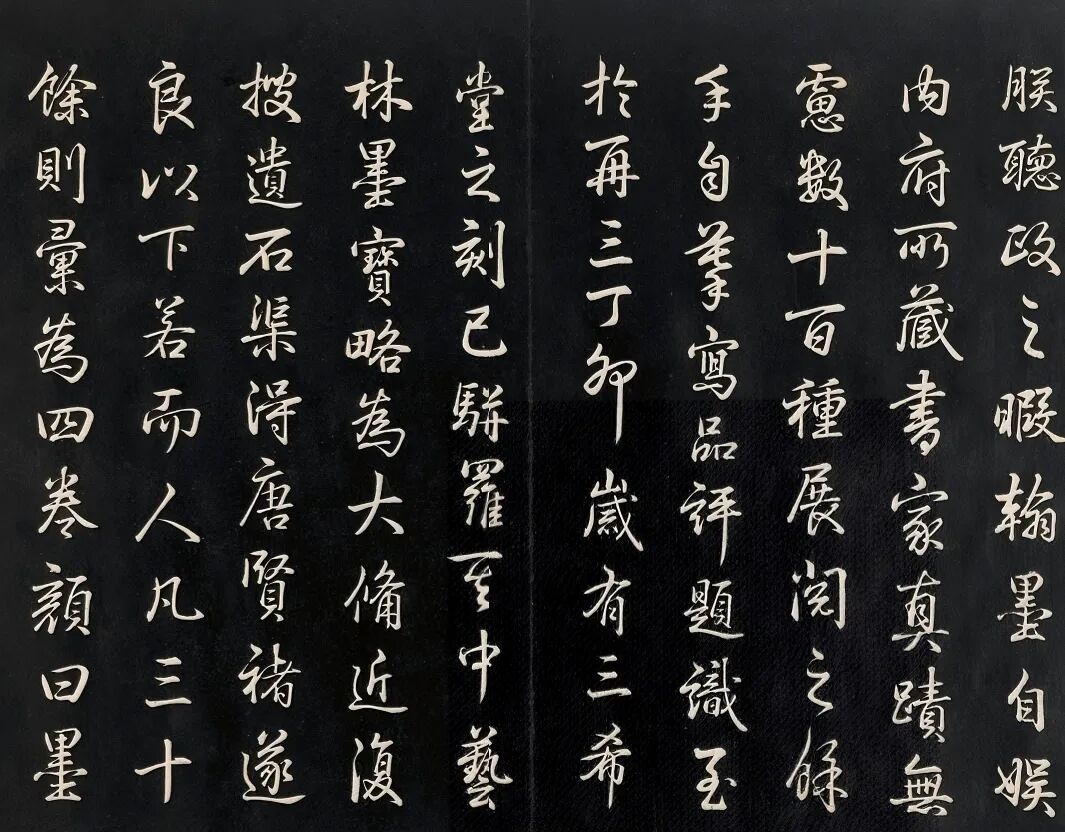 朕聽政之暇翰墨自娛
內府所藏書家真蹟無
慮數十百種展閱之餘
手自摹寫品評題識至
於再三丁卯歲有三希
堂之刻已駢羅其中藝
林墨寶略為大備近復
搜遺石渠得唐賢褚遂
良以下若而人凡三十
餘則彙為四卷顏曰墨